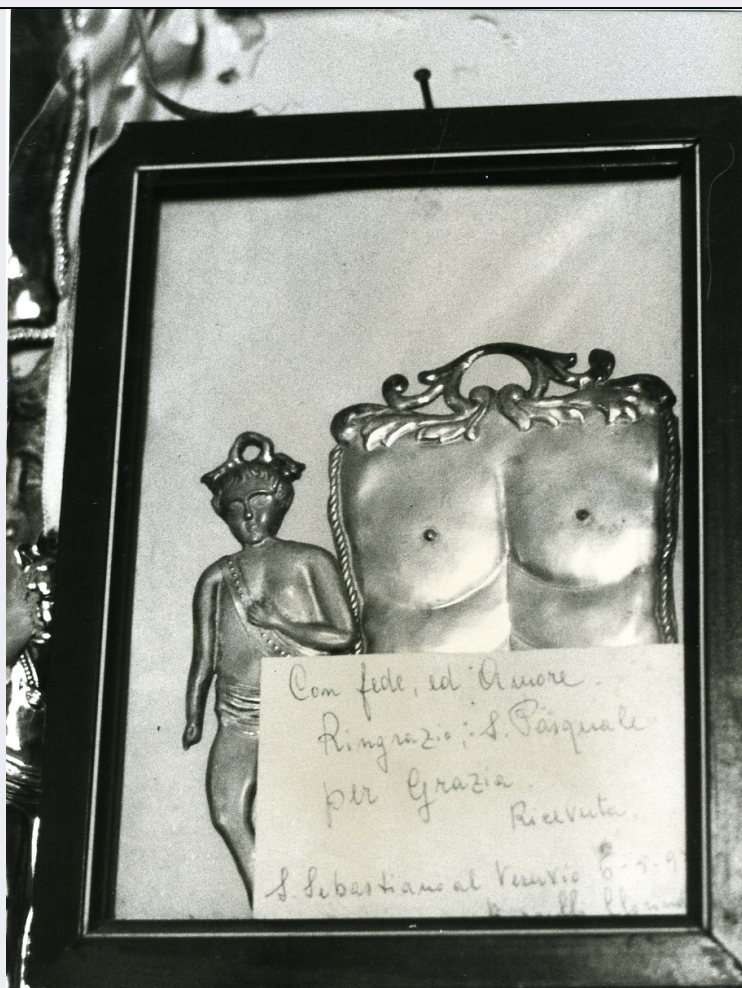 Con fede, ed Amore.
Ringrazio; S. Pasquale
per Grazia
Ricevuta.
S. Sebastiano al Vesuvio 6-5-9